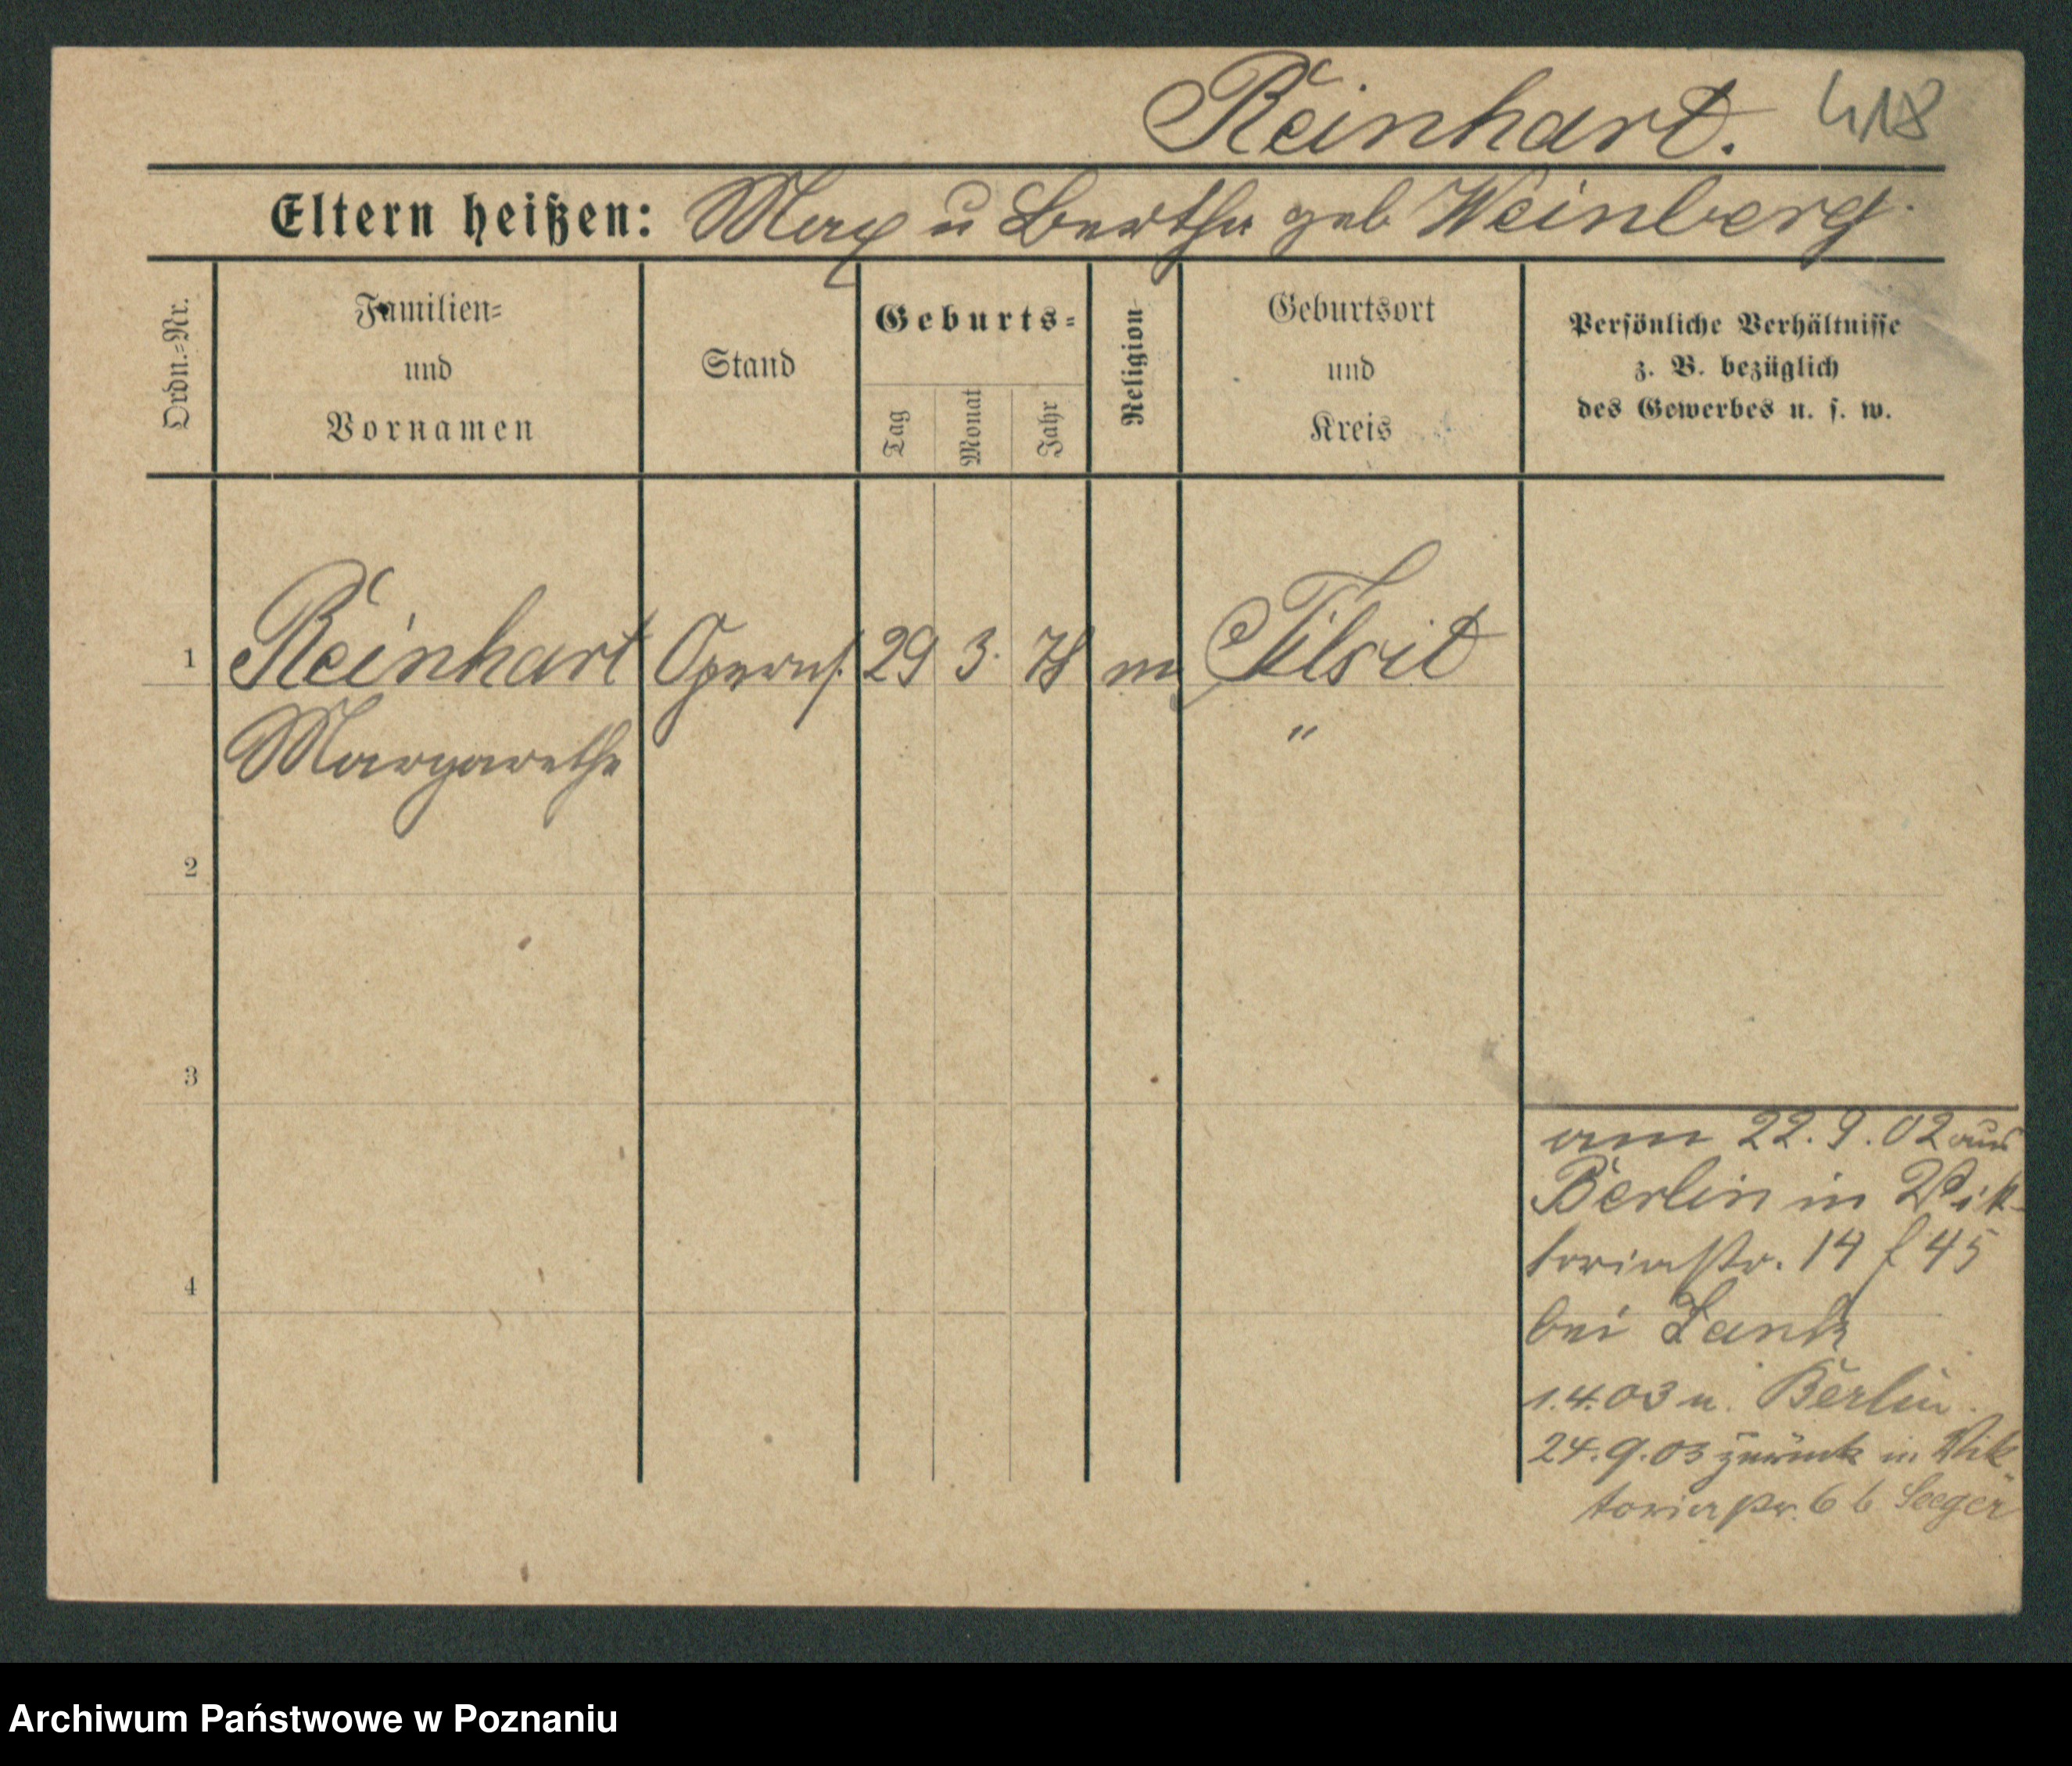 Reinhart. 418
Eltern heißen: Max u Bertha geb Weinberg.
Ordn.=Nr.
Familien=
und
Vornamen
Stand
Geburts=
Tag
Monat
Jahr
Religion
Geburtsort
und
Kreis
Persönliche Verhältnisse
z. B. bezüglich
des Gewerbes u. s. w.
1 Reinhart Operns. 29 3. 78 m Tilsit
Margarethe "
2
3
4
am 22.9.02 aus
Berlin in Vik-
toriastr. 14 f 45
bei Lank
1.4.03 n. Berlin.
24.9.03 zurück in Vik-
toriastr. 6 b Seeger
Archiwum Państwowe w Poznaniu